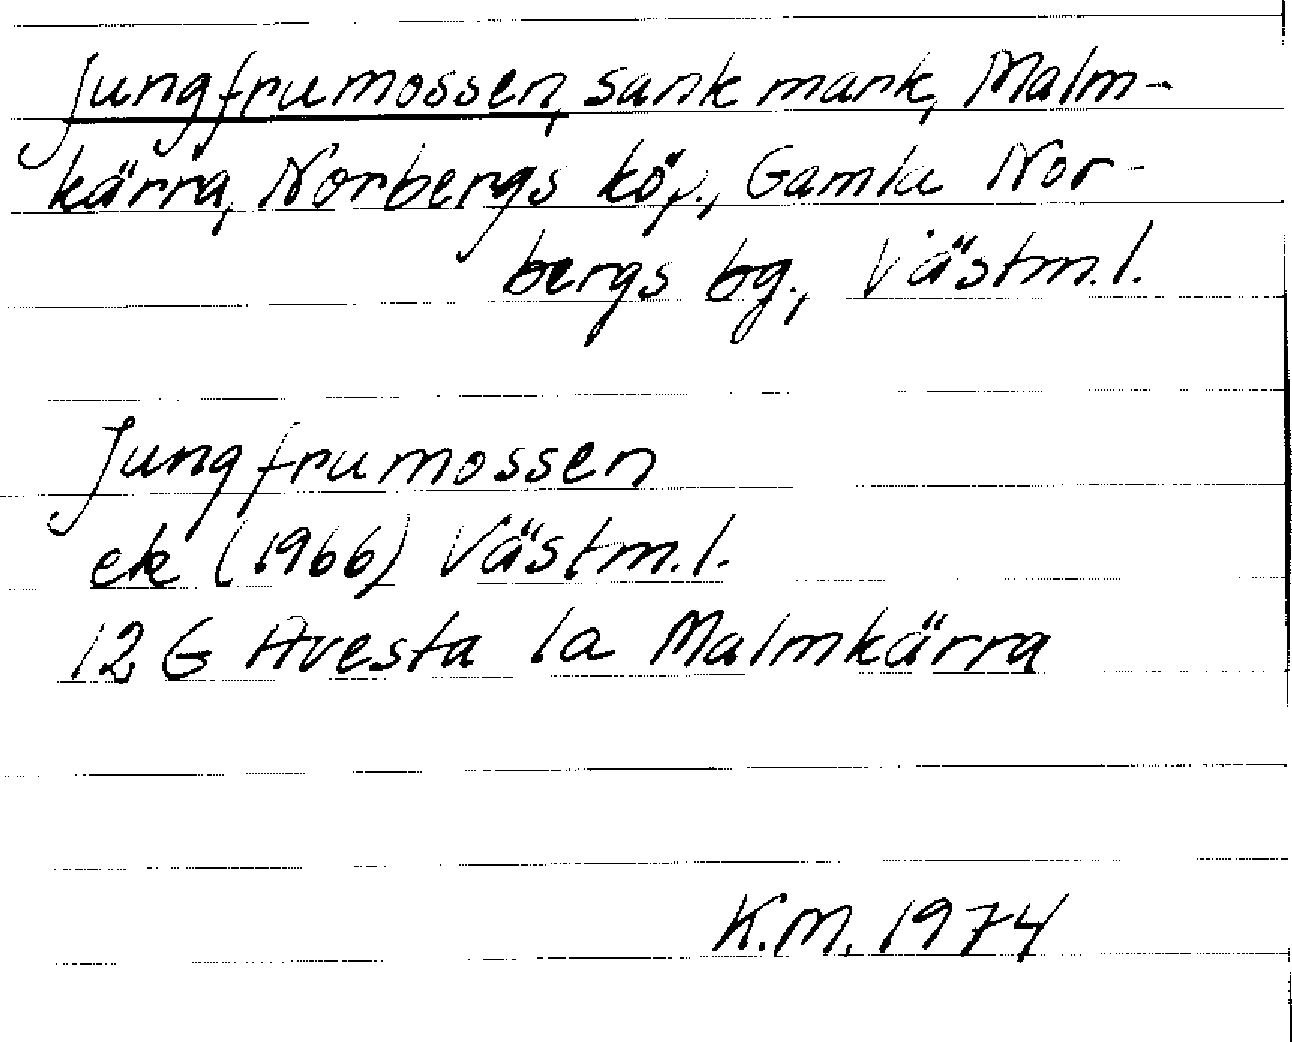 Jungfrumossen, sank mark, Malm-
kärra, Norbergs köp., Gamla Nor-
bergs bg., Västm.l.
Jungfrumossen
ek (1966) Västm.l.
12 G Avesta 1a Malmkärra
K.M. 1974